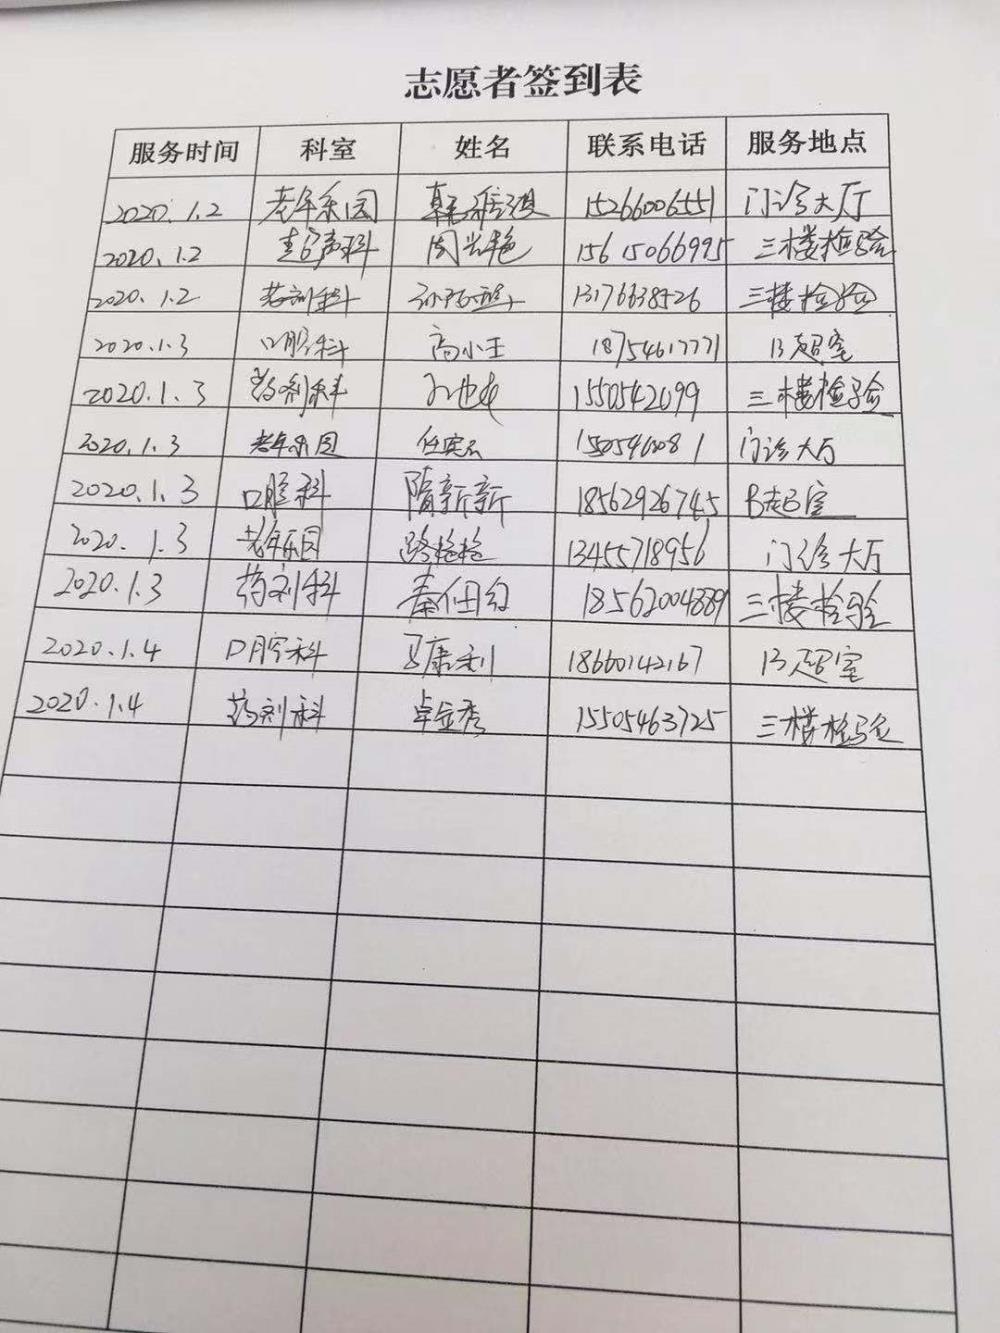 志愿者签到表
服务时间 科室 姓名 联系电话 服务地点
2020.1.2 老年乐园 15266006551 门诊大厅
2020.1.2 超声科 周兴艳 15615066995 三楼检验
2020.1.2 药剂科 13176638526 三楼检验
2020.1.3 口腔科 高小王 18754617771 B超室
2020.1.3 药剂科 1550542099 三楼检验
2020.1.3 老年乐园 门诊大厅
2020.1.3 口腔科 隋新新 18562926745 B超室
2020.1.3 老年乐园 路艳艳 13455718956 门诊大厅
2020.1.3 药剂科 秦细红 18562004889 三楼检验
2020.1.4 口腔科 马康利 18660142167 B超室
2020.1.4 药剂科 卓金秀 15505463725 三楼检验